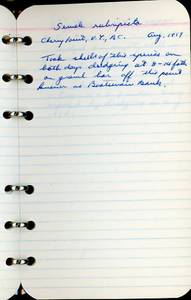 Semele rubropicta
Cherry Point, V.I., B.C. Aug. 1959
Took shells of this species on
both days dredging at 8-14 fath
on gravel bar off this point
known as Boatswain Bank.